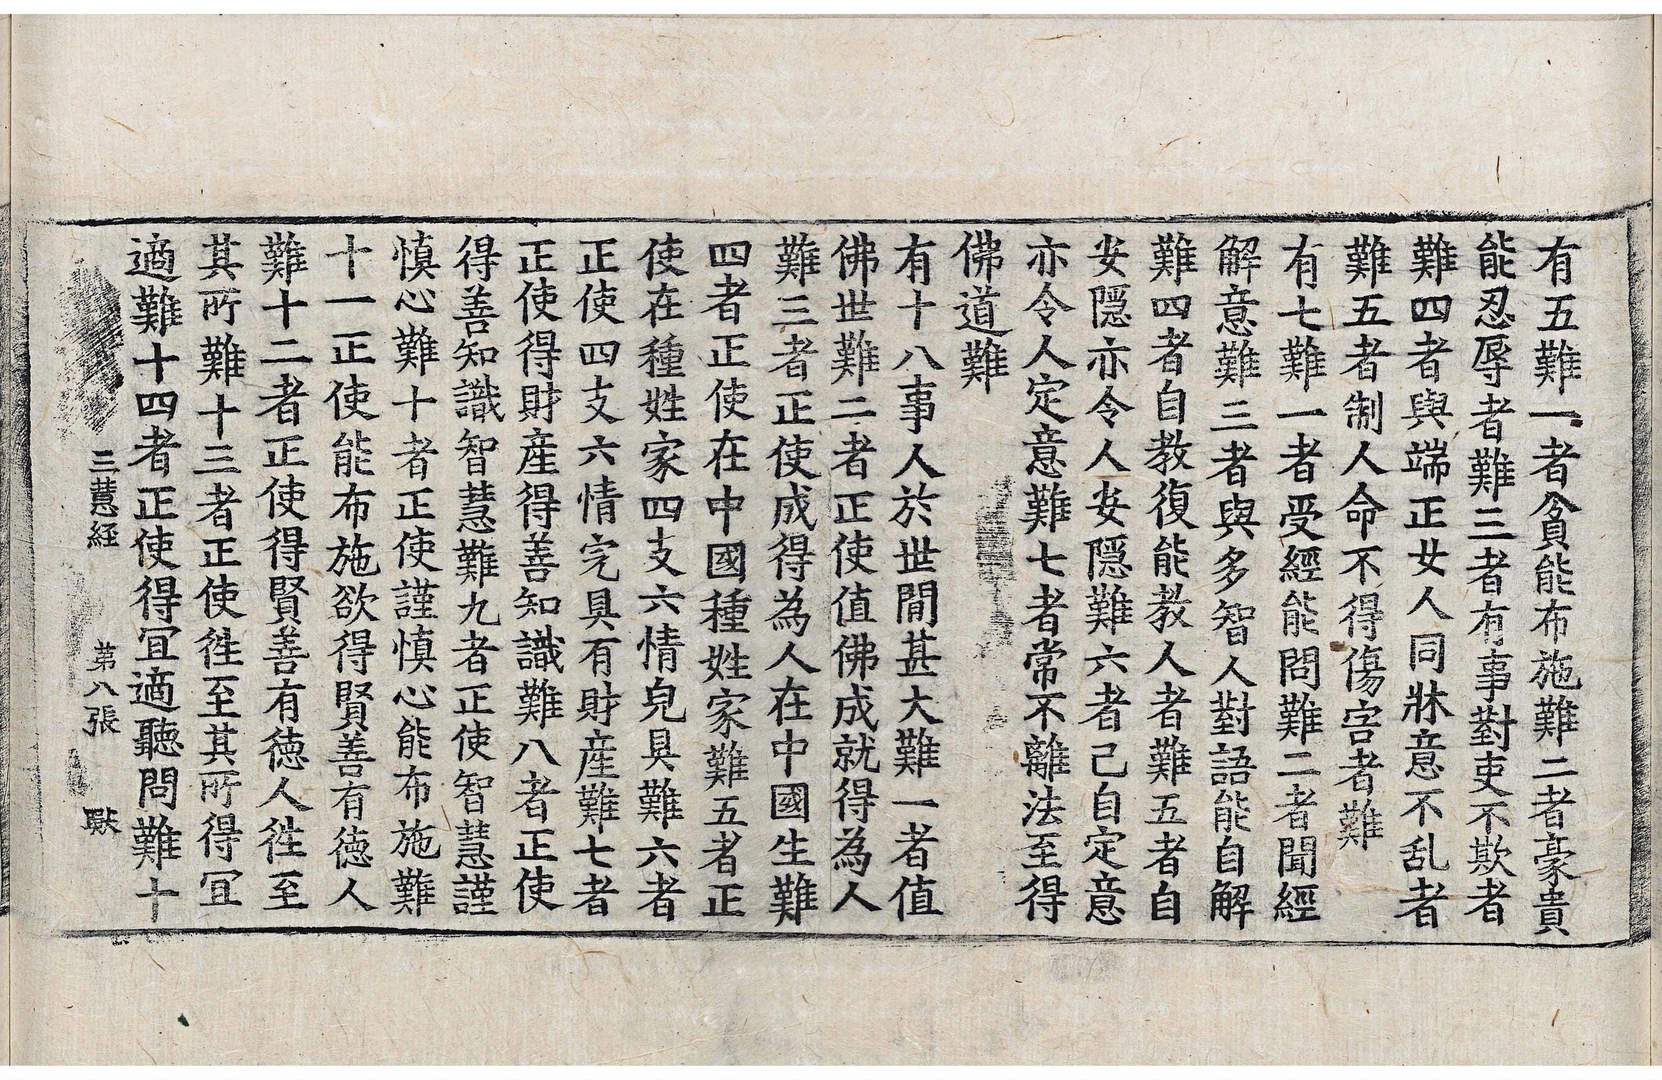 有五難一者貧能布施難二者豪貴
能忍辱者難三者有事對吏不欺者
難四者與端正女人同牀意不乱者
難五者制人命不得傷害者難
有七難一者受經能問難二者聞經
解意難三者與多智人對語能自解
難四者自教復能教人者難五者自
安隱亦令人安隱難六者己自定意
亦令人定意難七者常不離法至得
佛道難
有十八事人於世間甚大難一者值
佛世難二者正使值佛成就得為人
難三者正使成得為人在中國生難
四者正使在中國種姓家難五者正
使在種姓家四支六情皃具難六者
正使四支六情完具有財産難七者
正使得財産得善知識難八者正使
得善知識智慧難九者正使智慧謹
慎心難十者正使謹慎心能布施難
十一正使能布施欲得賢善有德人
難十二者正使得賢善有德人徃至
其所難十三者正使徃至其所得冝
適難十四者正使得冝適聽問難十
三慧經 第八張 獸